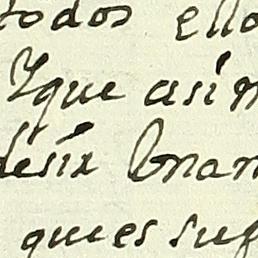 todos ello
Yque asi n
desir bnan
quies suf